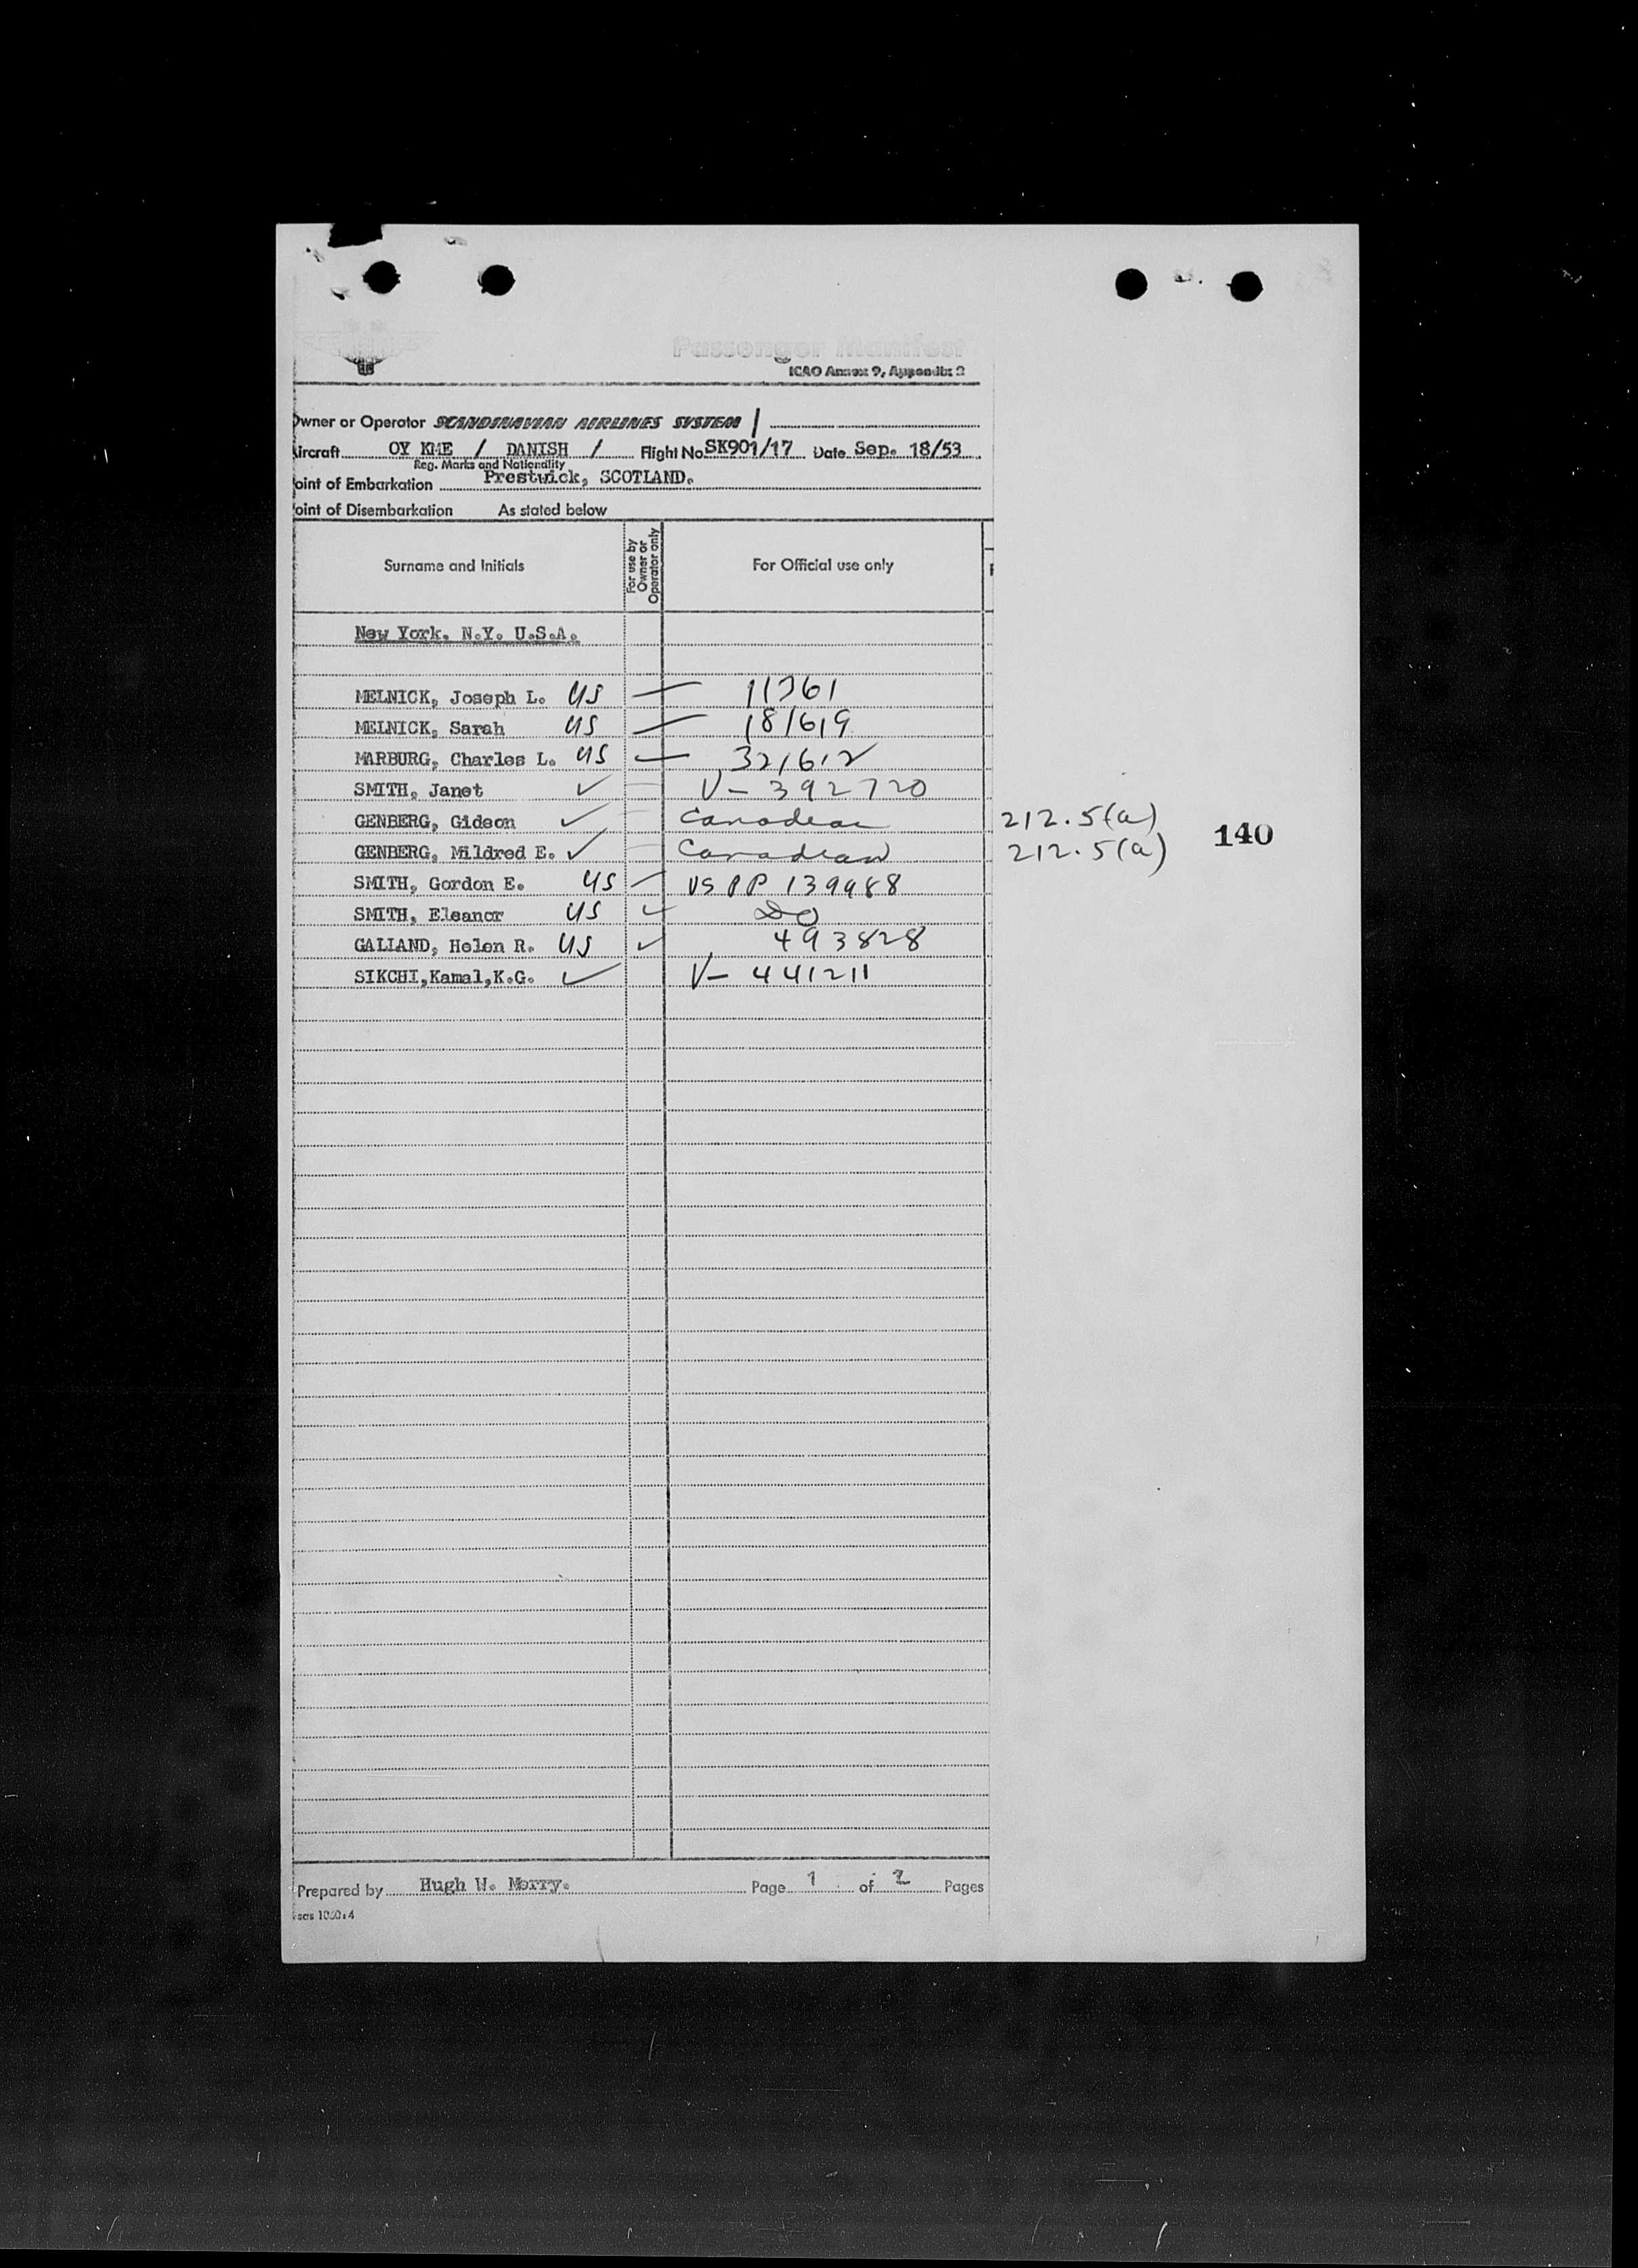 Passenger Manifest
ICAO Annex 9, Appendix 2
Owner or Operator SCANDINAVIAN AIRLINES SYSTEM /
Aircraft OY KME / DANISH / Flight No SK901/17 Date Sep. 18/53
Reg. Marks and Nationality
Point of Embarkation Prestwick, SCOTLAND.
Point of Disembarkation As stated below
Surname and Initials For use by Owner or Operator only For Official use only
New York. N.Y. U.S.A.
MELNICK, Joseph L. US — 11361
MELNICK, Sarah US — 181619
MARBURG, Charles L. US — 321612
SMITH, Janet ✓ V- 392720
GENBERG, Gideon ✓ Canadian 212.5(a)
140
GENBERG, Mildred E. ✓ Canadian 212.5(a)
SMITH, Gordon E. US — US PP 139988
SMITH, Eleanor US ✓ DO
GALLAND, Helen R. US ✓ 493828
SIKCHI,Kamal,K.G. ✓ V- 441211
Prepared by Hugh W. Morry. Page 1 of 2 Pages
sas 1030:4